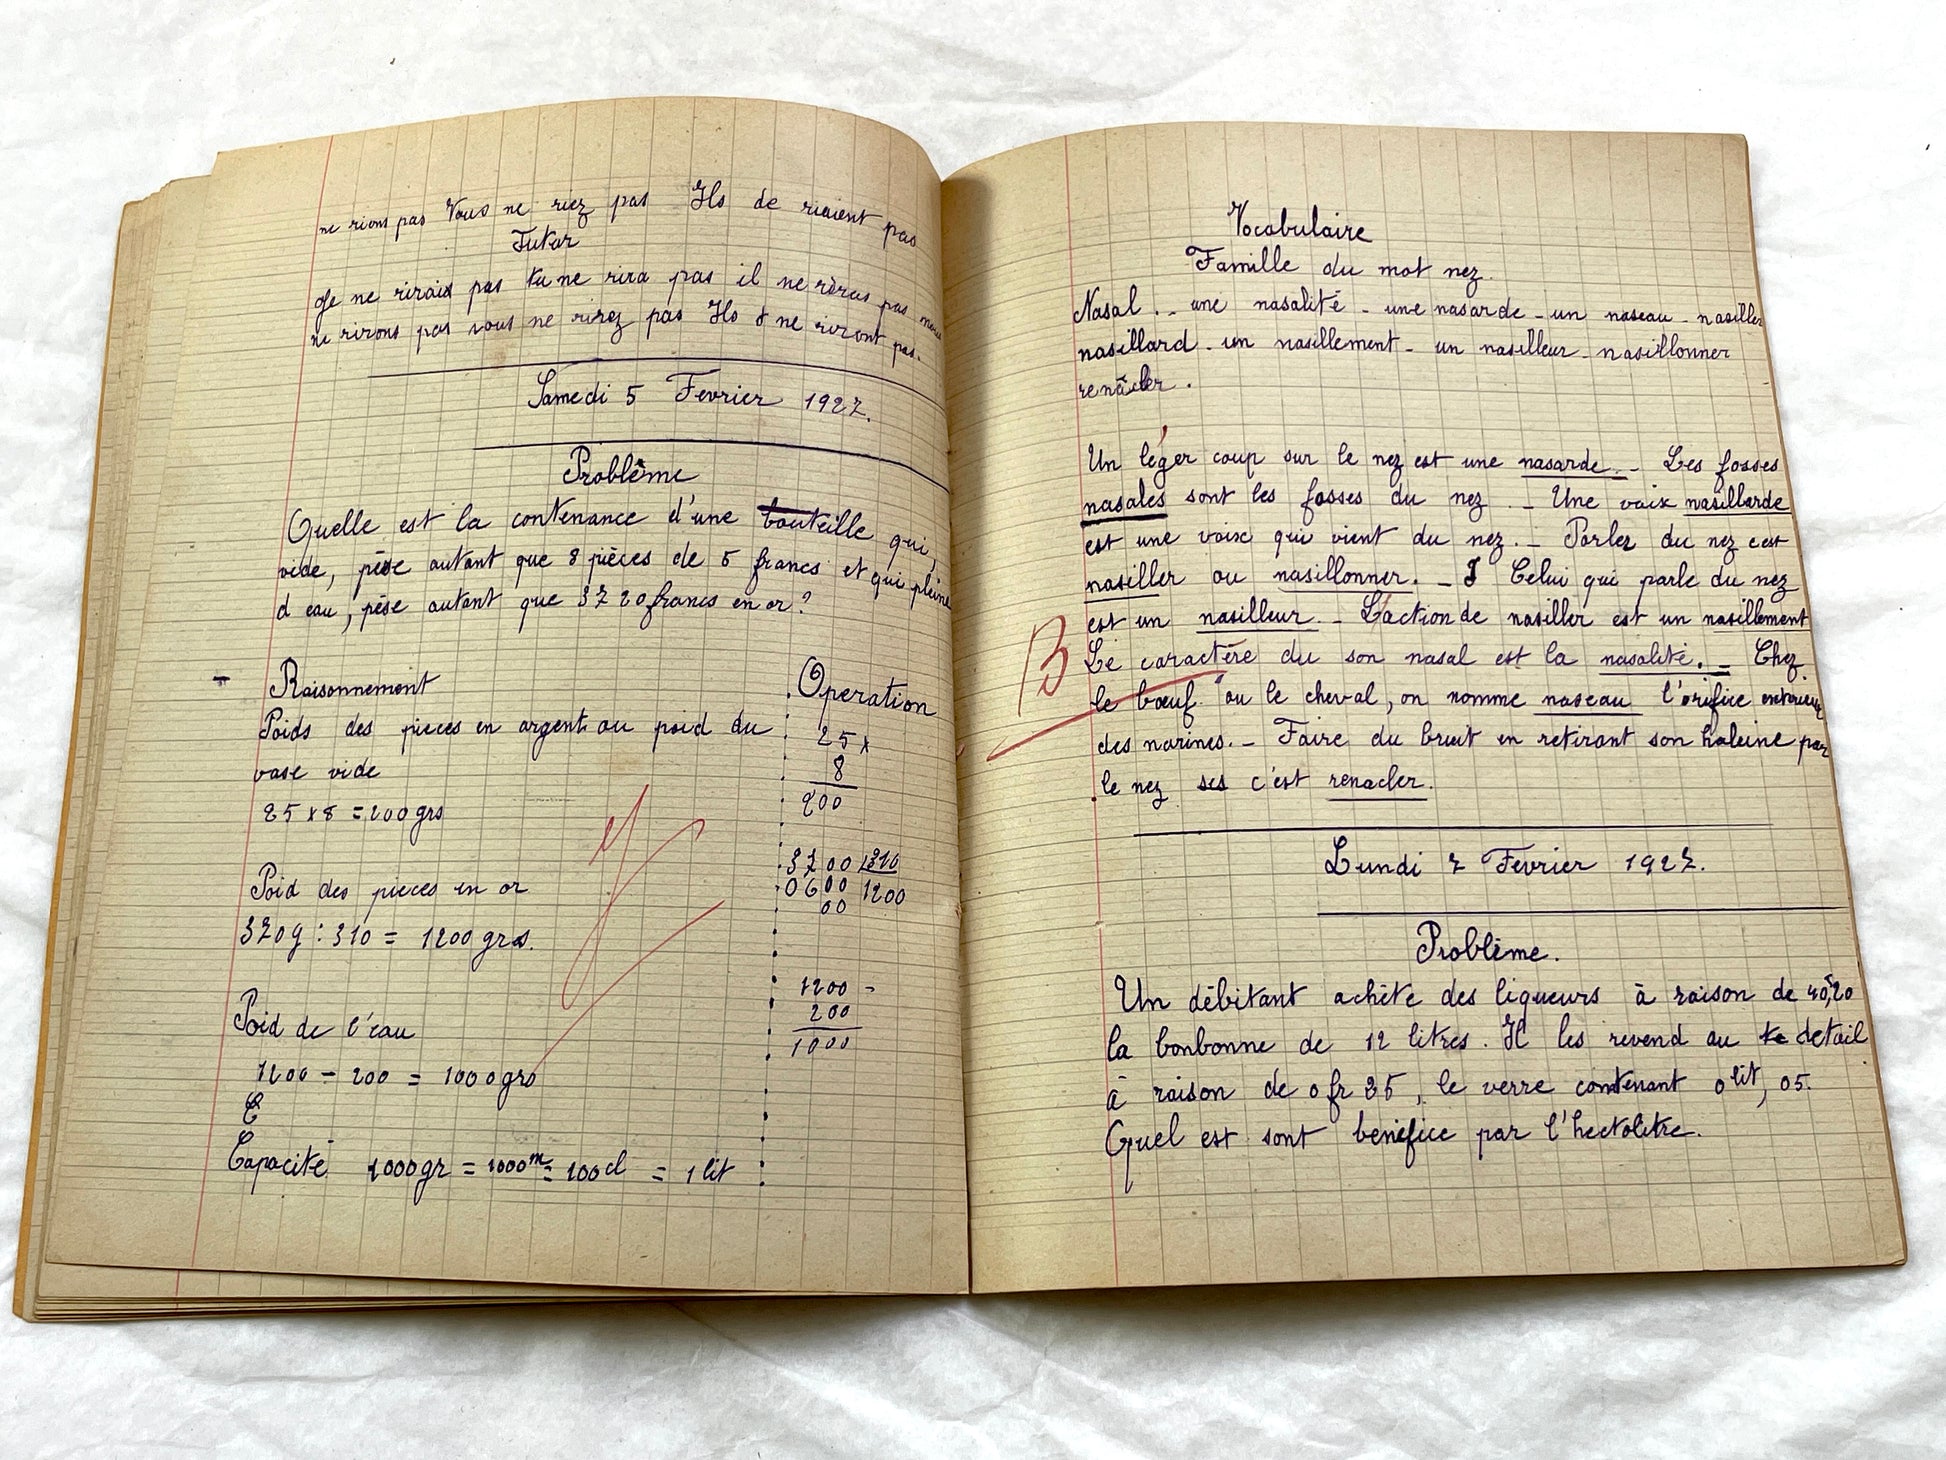 ne rions pas Vous ne riez pas Ils de riaient pas
Futur
Je ne rirais pas tu ne rira pas il ne riras pas nous
ne rirons pas vous ne rirez pas Ils ne riront pas.
Samedi 5 Fevrier 1927.
Problème
Quelle est la contenance d'une bouteille qui,
vide, pèse autant que 8 pièces de 5 francs et qui pleine
d eau, pèse autant que 3720 francs en or?
Raisonnement
Poids des pieces en argent ou poid du
vase vide
25 x 8 = 200 grs
Poid des pieces en or
3720 : 310 = 1200 grs.
Poid de l'éau
1200 - 200 = 1000 grs
C
Capacité 1000gr = 1000 m = 100 cl = 1 lit
Operation
25 x
8
200
3700 310
0600 1200
00
1200 -
200
1000
Vocabulaire
Famille du mot nez.
Nasal. - une nasalité - une nasarde - un naseau - nasiller
nasillard - un nasillement - un nasilleur - nasillonner
renâcler.
Un léger coup sur le nez est une nasarde. - Les fosses
nasales sont les fosses du nez. - Une voix nasillarde
est une voix qui vient du nez. - Parler du nez c'est
nasiller ou nasillonner. - Celui qui parle du nez
est un nasilleur. - L'action de nasiller est un nasillement
B
Le caractère du son nasal est la nasalité. = Chez
le bœuf ou le cheval, on nomme naseau l'orifice exterieur
des narines. - Faire du bruit en retirant son haleine par
le nez ses c'est renacler.
Lundi 7 Fevrier 1927.
Problème.
Un débitant achète des liqueurs à raison de 40,20
la bonbonne de 12 litres. Il les revend au te detail
à raison de 0 fr 35, le verre contenant 0 lit, 05.
Quel est sont benefice par l'hectolitre.